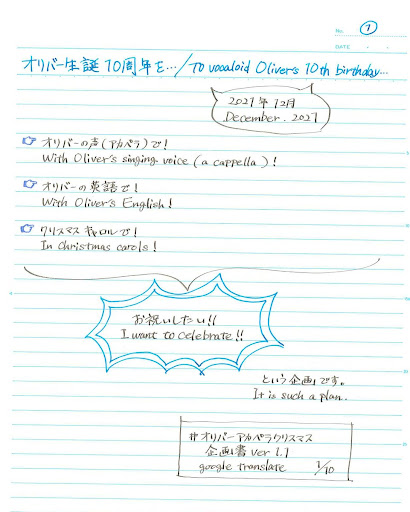 No.
①
DATE
オリバー生誕10周年を…/To vocaloid Oliver's 10th birthday…
2021年12月
December. 2021
オリバーの声(アカペラ)で!
With Oliver's singing voice (a cappella)!
オリバーの英語で!
With Oliver's English!
クリスマスキャロルで!
In Christmas carols!
お祝いしたい!!
I want to celebrate!!
という企画です。
It is such a plan.
#オリバーアカペラクリスマス
企画書 ver 1.1
google translate 1/10